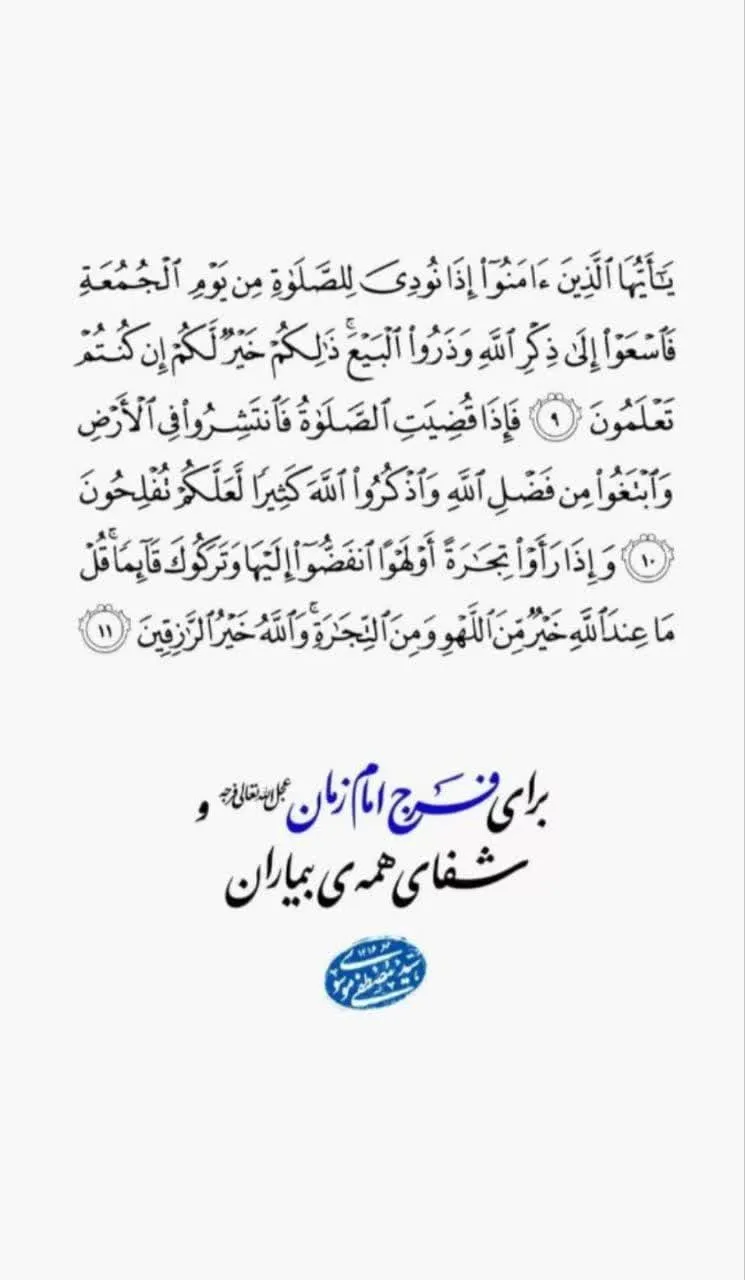 يَـٰٓأَيُّهَا ٱلَّذِينَ ءَامَنُوٓا۟ إِذَا نُودِىَ لِلصَّلَوٰةِ مِن يَوْمِ ٱلْجُمُعَةِ
فَٱسْعَوْا۟ إِلَىٰ ذِكْرِ ٱللَّهِ وَذَرُوا۟ ٱلْبَيْعَ ۚ ذَٰلِكُمْ خَيْرٌ لَّكُمْ إِن كُنتُمْ
تَعْلَمُونَ ٩ فَإِذَا قُضِيَتِ ٱلصَّلَوٰةُ فَٱنتَشِرُوا۟ فِى ٱلْأَرْضِ
وَٱبْتَغُوا۟ مِن فَضْلِ ٱللَّهِ وَٱذْكُرُوا۟ ٱللَّهَ كَثِيرًا لَّعَلَّكُمْ تُفْلِحُونَ
١٠ وَإِذَا رَأَوْا۟ تِجَـٰرَةً أَوْ لَهْوًا ٱنفَضُّوٓا۟ إِلَيْهَا وَتَرَكُوكَ قَآئِمًا ۚ قُلْ
مَا عِندَ ٱللَّهِ خَيْرٌ مِّنَ ٱللَّهْوِ وَمِنَ ٱلتِّجَـٰرَةِ ۚ وَٱللَّهُ خَيْرُ ٱلرَّٰزِقِينَ ١١
برای فرج امام زمان عجل الله تعالی فرجه و
شفای همه ی بیماران
سید مصطفی موسوی